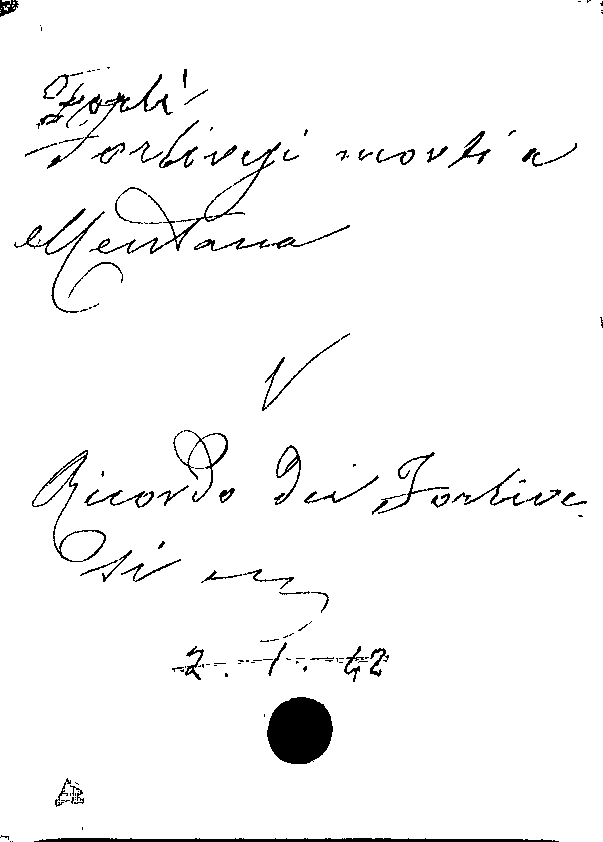 Forlì-
Forlivesi morti a
Mentana
V
Ricordo dei Forlive-
si
2. 1. 42